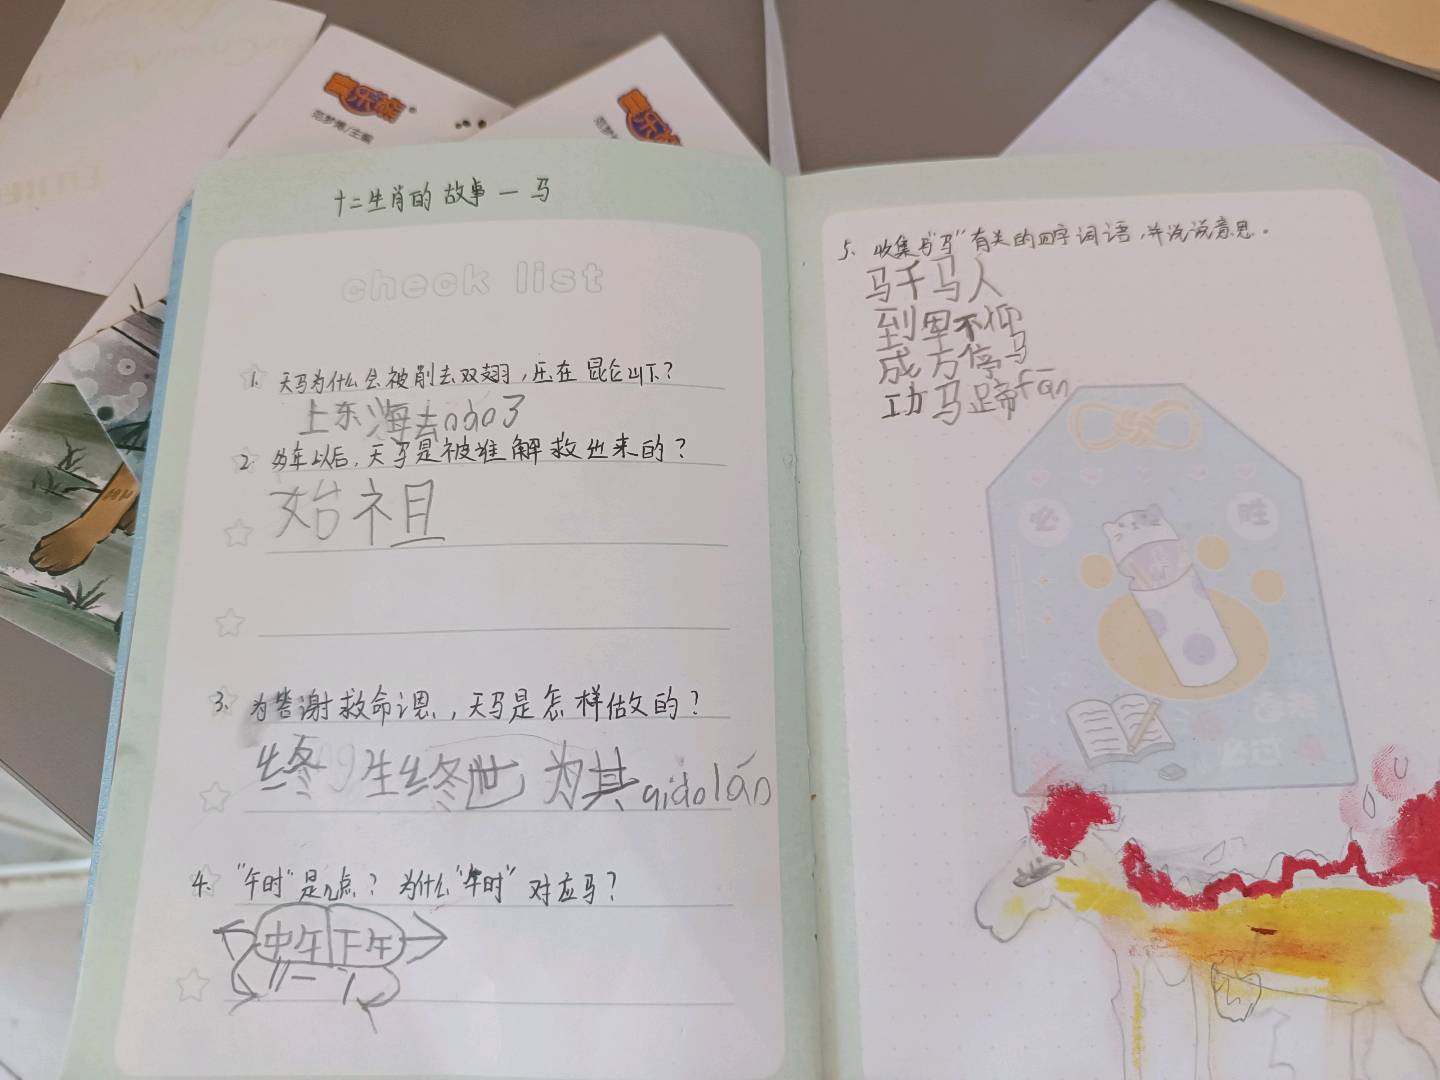 喜乐熊
范梦博/主编
十二生肖的故事—马
check list
1. 天马为什么会被削去双翅，压在昆仑山下？
上东海去nào了
2. 多年以后，天马是被谁解救出来的？
始祖
3. 为答谢救命之恩，天马是怎样做的？
终生终世为其qidolán
4. “午时”是几点？为什么“午时”对应马？
中午下午
11—1
5. 收集与“马”有关的四字词语，并说说意思。
马千马人
到里不仰
成方停马
功马蹄fān
必
胜